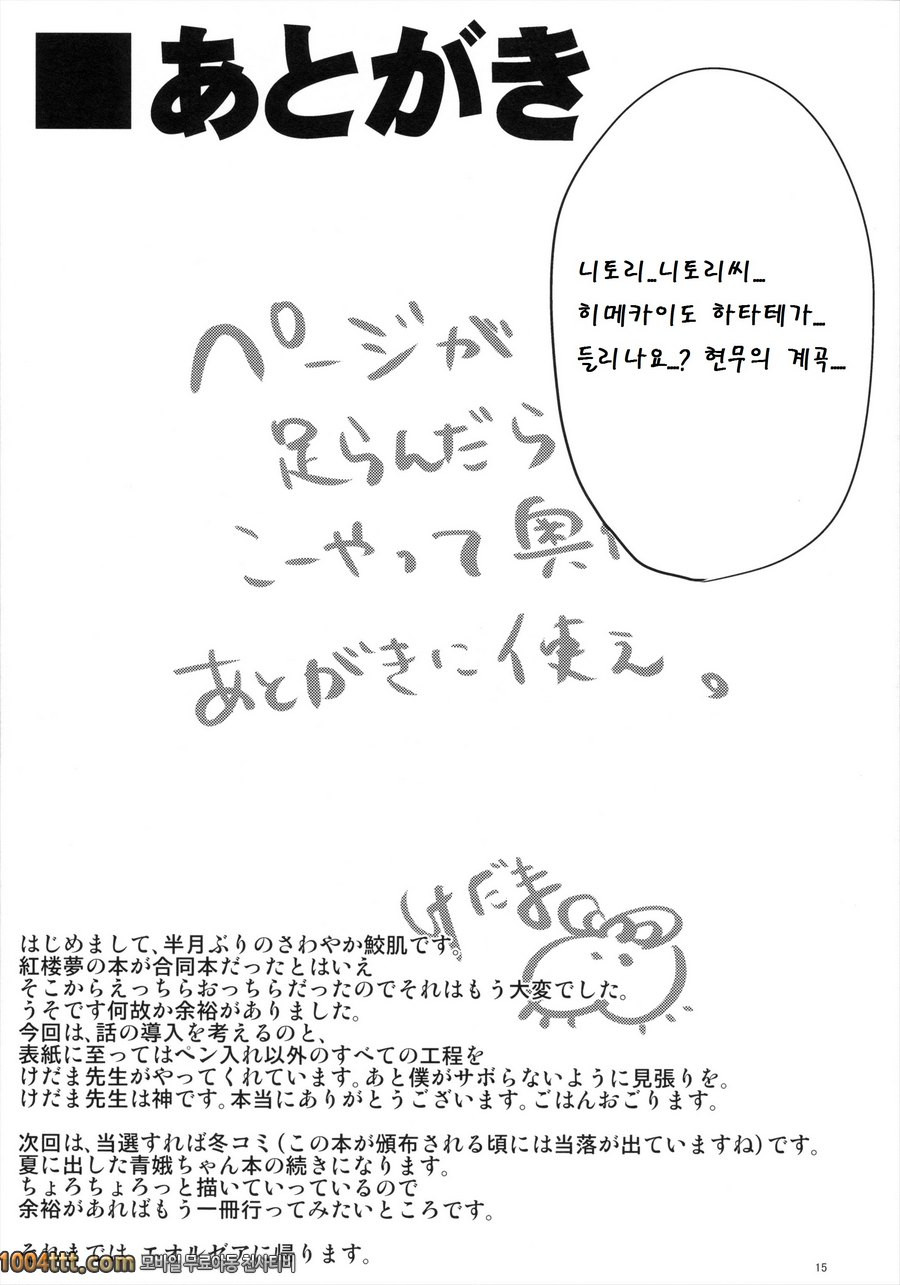 ■あとがき
니토리...니토리씨...
히메카이도 하타테가...
들리나요...? 현무의 계곡....
ページが
足らんだら
こーやって奥
あとがきに使え。
けだま
はじめまして、半月ぶりのさわやか鮫肌です。
紅楼夢の本が合同本だったとはいえ
そこからえっちらおっちらだったのでそれはもう大変でした。
うそです何故か余裕がありました。
今回は、話の導入を考えるのと、
表紙に至ってはペン入れ以外のすべての工程を
けだま先生がやってくれています。あと僕がサボらないように見張りを。
けだま先生は神です。本当にありがとうございます。ごはんおごります。
次回は、当選すれば冬コミ(この本が頒布される頃には当落が出ていますね)です。
夏に出した青娥ちゃん本の続きになります。
ちょろちょろっと描いていっているので
余裕があればもう一冊行ってみたいところです。
それまでは、エオルゼアに帰ります。
1004ttt.com 모바일 무료야동 천사티비
15